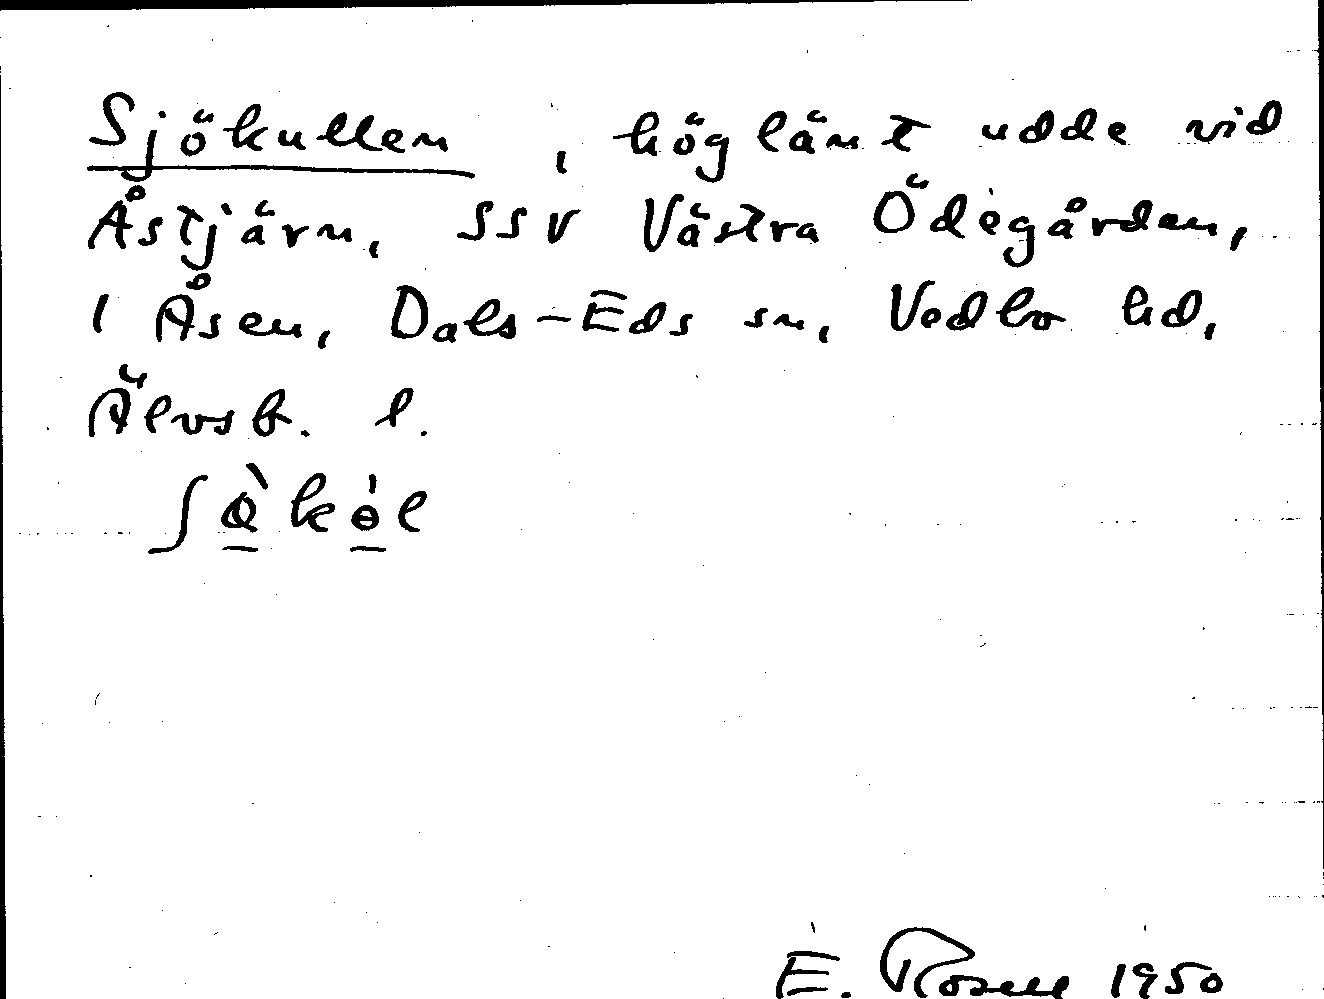 Sjökullen, höglänt udde vid
Åstjärn, SSV Västra Ödegården,
1 Åsen, Dals-Eds sn, Vedbo hd,
Älvsb. l.
ʃø̠̀kɵ̠̍l
E. Rosell 1950